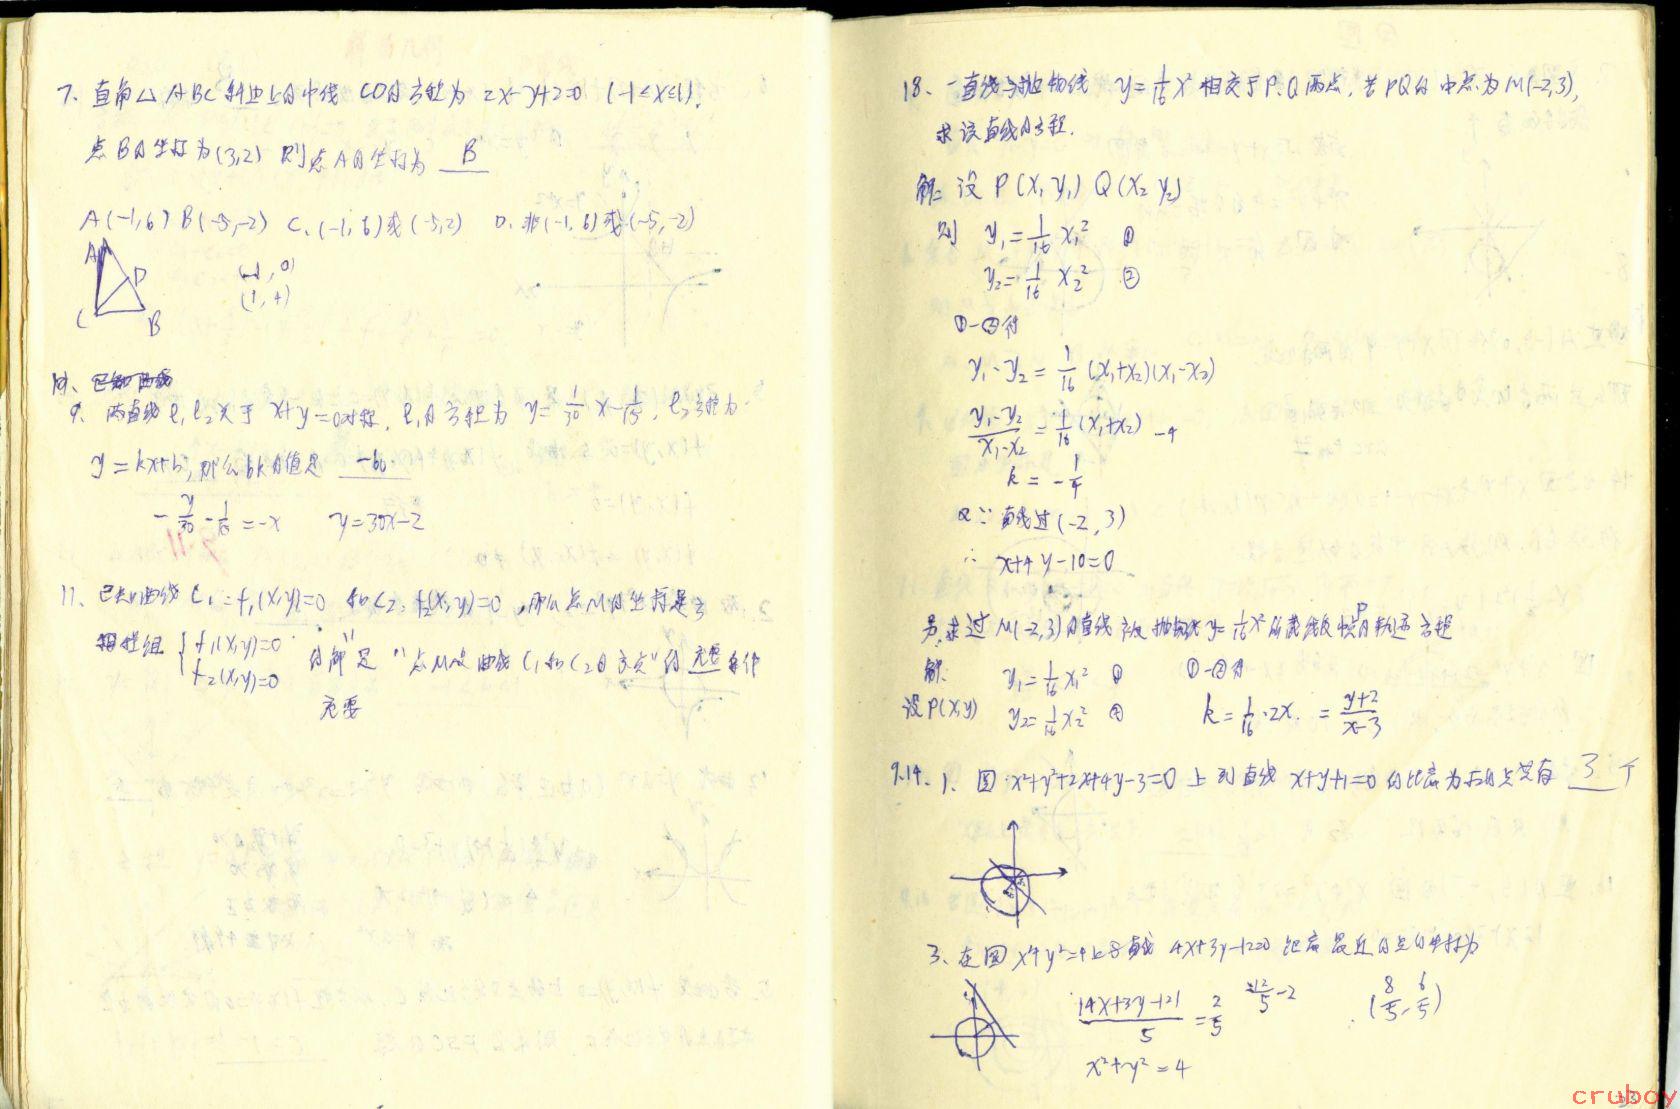 7. 直角△ABC 斜边上的中线 CD的方程为 2x-y+2=0 (-1≤x≤1),
点B的坐标为(3,2) 则点A的坐标为 B
A(-1,6) B(-5,-2) C、(-1,6)或(-5,2) D.非(-1,6)或(-5,-2)
A
D
C
B
(-1,0)
(1,4)
9. 两直线 l₁ l₂关于 x+y=0对称, l₁的方程为 y=1/30 x-1/15, l₂方程为
y=kx+b, 那么bk的值是 -60
-y/30-1/15=-x y=30x-2
11. 已知曲线 C₁:f₁(x,y)=0 和C₂:f₂(x,y)=0,那么点M的坐标是方
程组 { f₁(x,y)=0 f₂(x,y)=0 的解是"点M是曲线C₁和C₂的交点"的 充要 条件
充要
18、一直线与抛物线 y=1/16x² 相交于P、Q两点,若PQ的中点为M(-2,3),
求该直线的方程.
解: 设 P(x₁ y₁) Q(x₂ y₂)
则 y₁=1/16 x₁² ①
y₂=1/16 x₂² ②
①-②得
y₁-y₂=1/16 (x₁+x₂)(x₁-x₂)
(y₁-y₂)/(x₁-x₂)=1/16(x₁+x₂) -4
k=-1/4
∵直线过(-2,3)
∴ x+4y-10=0
另,求过M(-2,3)的直线 抛物线y=1/16x²所截线段中点P的轨迹方程
解: y₁=1/16x₁² ① ①-②得
设P(x,y) y₂=1/16x₂² ② k=1/16·2x. =(y+2)/(x-3)
9.14. 1、圆 x²+y²+2x+4y-3=0 上到直线 x+y+1=0 的距离为√2的点共有 3 个
3、在圆 x²+y²=4上与直线 4x+3y-12=0 距离最近的点的坐标为
|4x+3y-12|/5=2/5 12/5-2 (8/5,6/5)
x²+y²=4
cruboy